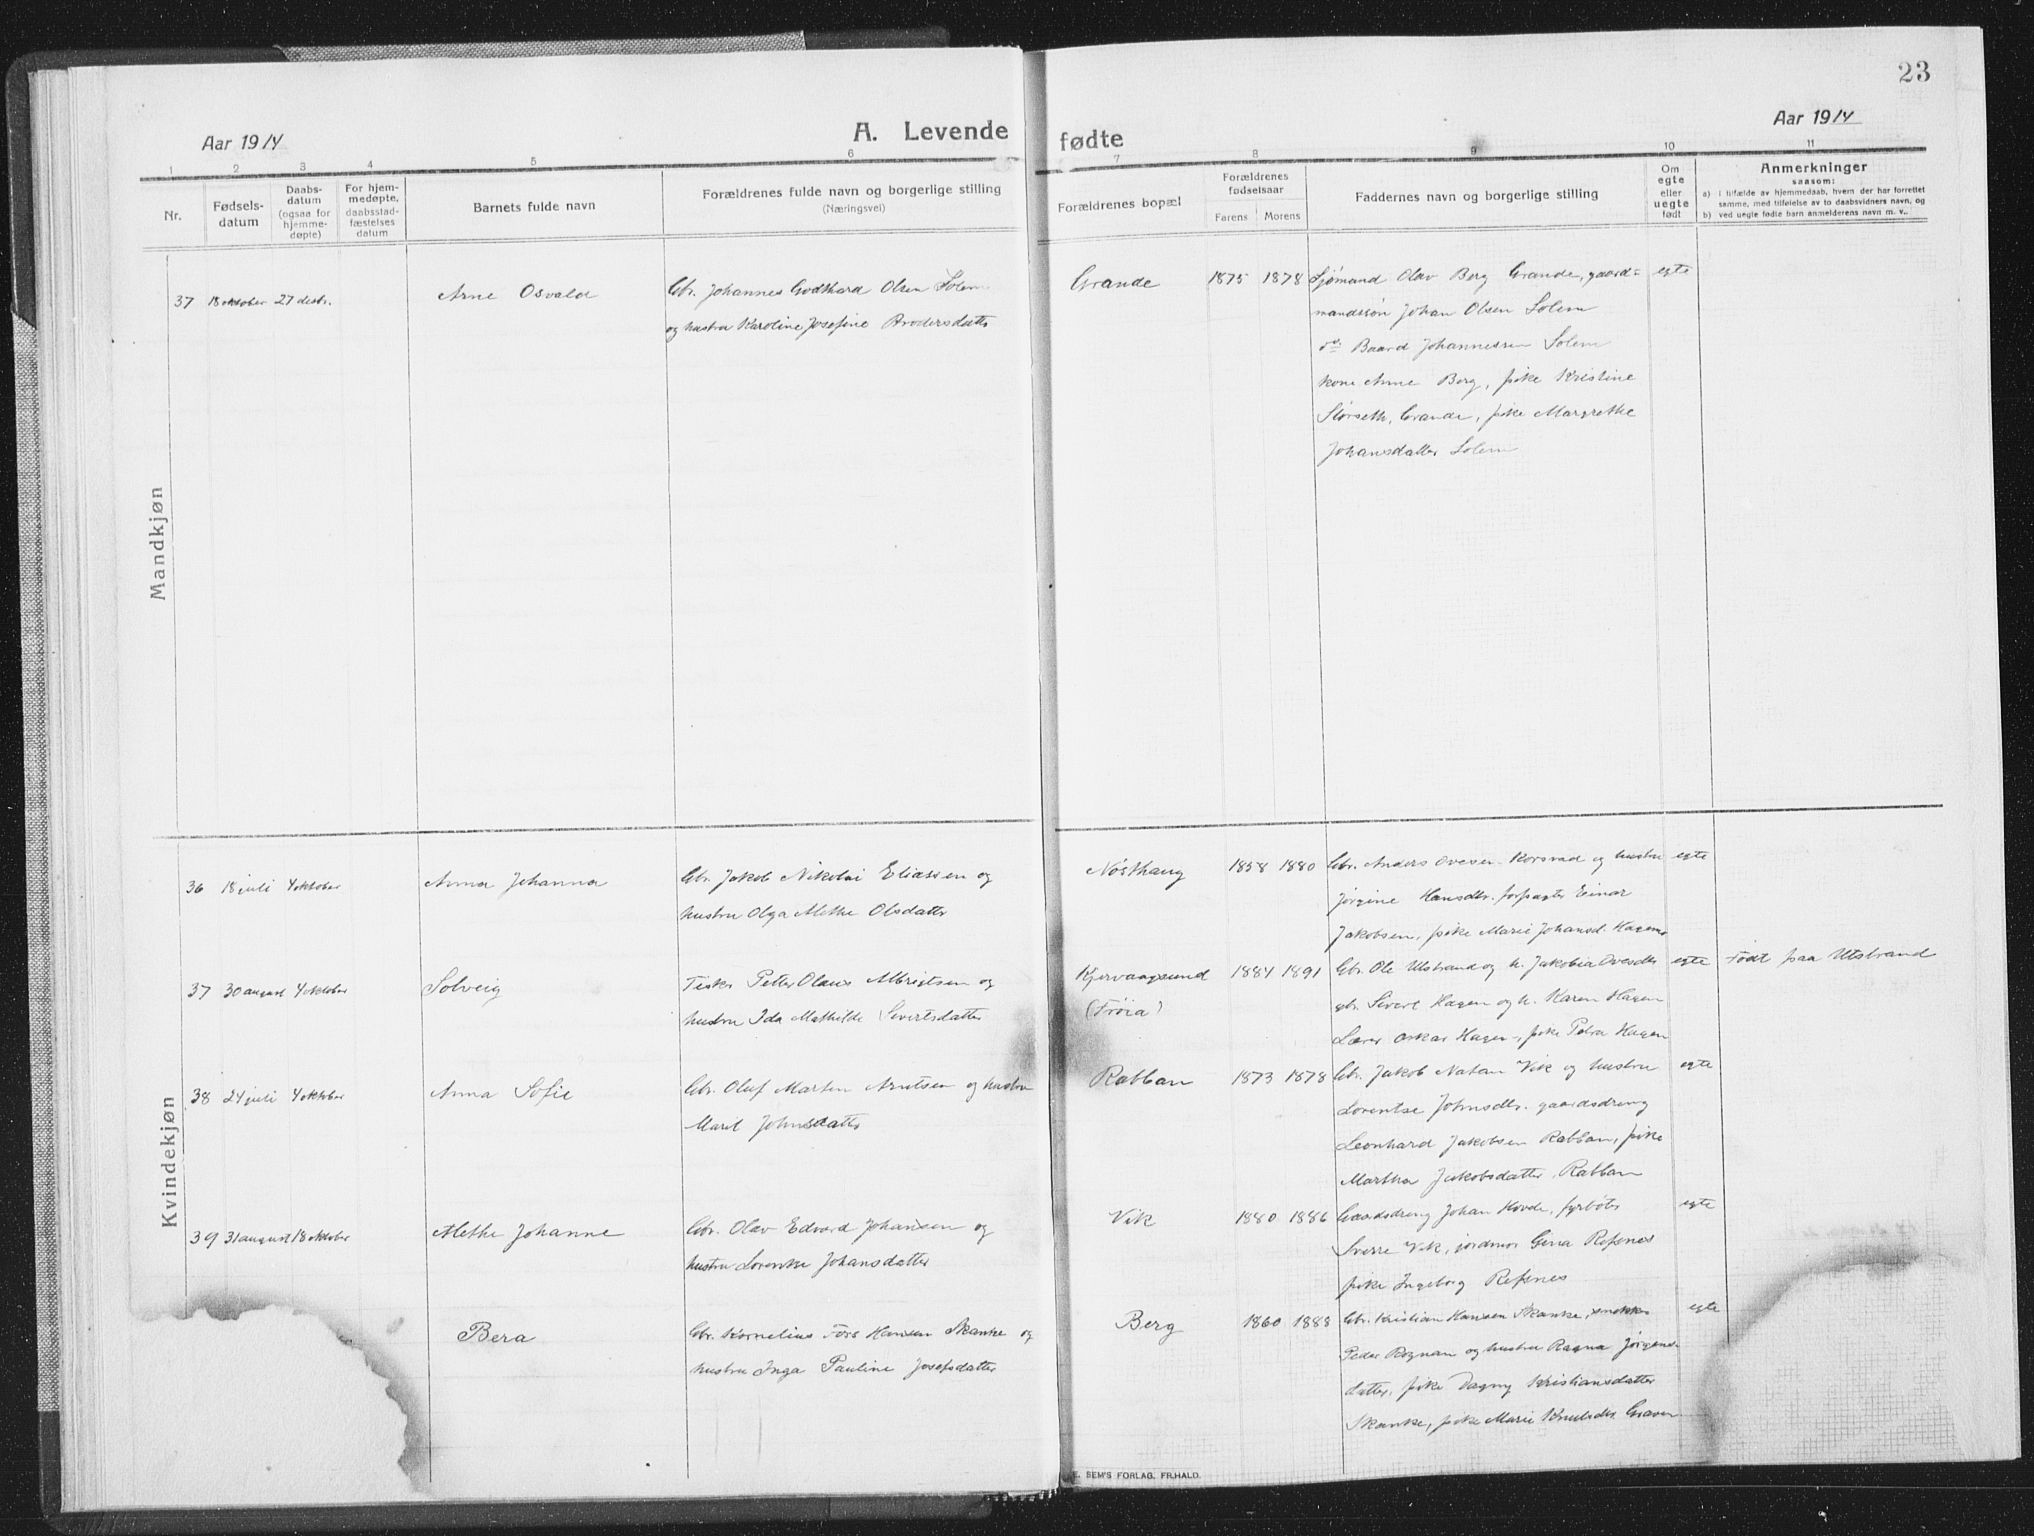 23
Aar 1914
A. Levende fødte
Aar 1914
1 2 3 4 5 6 7 8 9 10 11
Nr.
Fødsels-
datum
Daabs-
datum
(ogsaa for
hjemme-
døpte)
For hjem-
medøpte,
daabsstad-
fæstelses
datum
Barnets fulde navn
Forældrenes fulde navn og borgerlige stilling
(Næringsvei)
Forældrenes bopæl
Forældrenes
fødselsaar
Farens Morens
Faddernes navn og borgerlige stilling
Om
egte
eller
uegte
født
Anmerkninger
saasom:
a) I tilfælde av hjemmedaab, hvem der har forrettet
samme, med tilføielse av to daabsvidners navn, og
b) ved uegte fødte barn anmelderens navn m. v..
Mandkjøn
37 18 oktober 27 desbr. Arne Osvald
Gbr. Johannes Godthard Olsen Solem
og hustru Karoline Josefine Brodersdatter
Grande 1875 1878
Sjømand Olav Berg Grande, gaard-
mandssøn Johan Olsen Solem
do Baard Johannessen Solem
kone Anne Berg, pike Kristine
Størseth, Grande, pike Margrethe
Johansdatter Solem
egte
Kvindekjøn
36 18 juli 4 oktober Anna Johanna
Gbr. Jakob Nikolai Eliassen og
hustru Olga Methe Olsdatter
Nøsthaug 1858 1880
Gbr. Anders Ovesen Korsvad og hustru
Jørgine Hansdtr. forpagter Einar
Jakobsen, pike Marie Johansd. Hagen
egte
37 30 august 4 oktober Solveig
Fisker Petter Olaus Albrigtsen og
hustru Ida Mathilde Sivertsdatter
Kjervaagsund
(Frøia)
1884 1891
Gbr. Ole Utstrand og h. Jakobia Ovesdtr
gbr. Sivert Hagen og h. Karen Hagen
Lærer Oskar Hagen, pike Petra Hagen
egte
Født paa Utstrand
38 24 juli 4 oktober Anna Sofie
Gbr. Oluf Martin Arntsen og hustru
Marit Johnsdatter
Rabban 1873 1878
Gbr. Jakob Natan Vik og hustru
Lorentse Johnsdtr. gaardsdreng
Leonhard Jakobsen Rabban, pike
Martha Jakobsdatter Rabban
egte
39 31 august 18 oktober Methe Johanne
Gbr. Olav Edvard Johansen og
hustru Lorentse Johansdatter
Vik 1880 1886
Gaardsdreng Johan Hovde, fyrbøter
Sverre Vik, jordmor Gina Refsnes
pike Ingeborg Refsnes
egte
Bera
Gbr. Kornelius Fors Hansen Skanke og
hustru Inga Pauline Josefsdatter
Berg 1860 1888
Gbr. Kristian Hansen Skanke, snekker
Peder Rognan og hustru Ragna Jørgens-
datter, pike Dagny Kristiansdatter
Skanke, pike Marie Knutsdtr. Graven
egte
E. SEM'S FORLAG, FR.HALD.